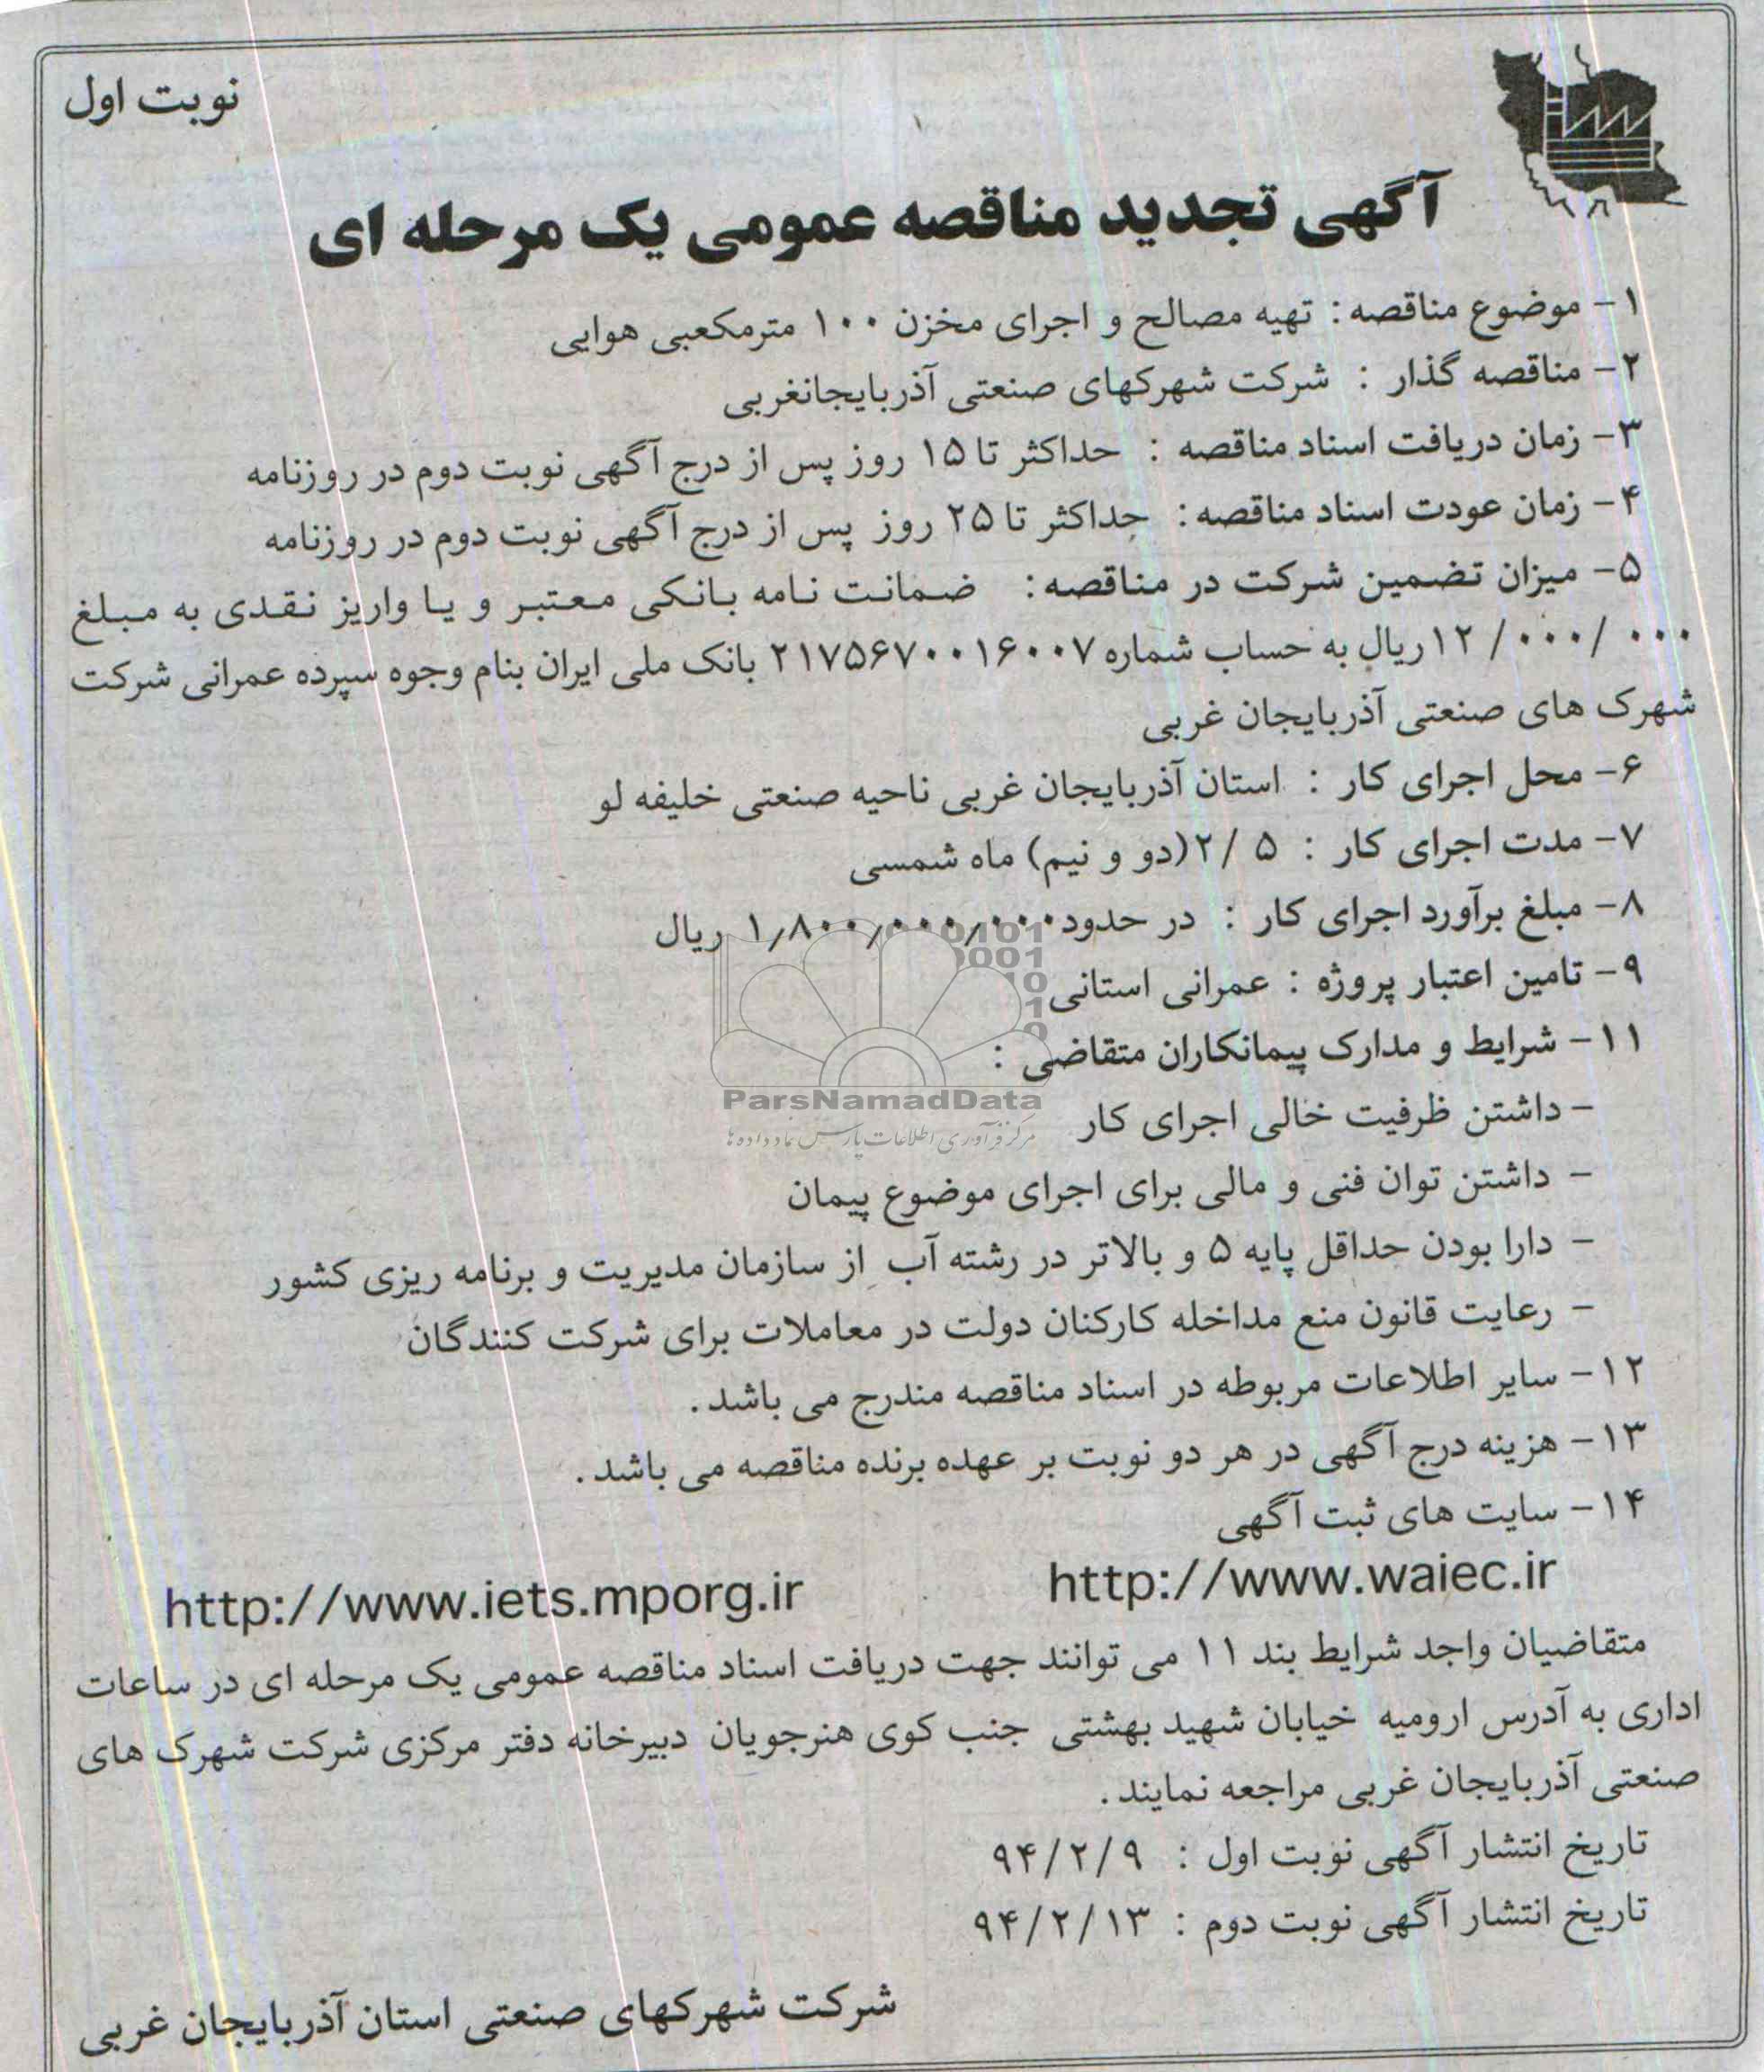 نوبت اول
آگهی تجدید مناقصه عمومی یک مرحله ای
۱- موضوع مناقصه: تهیه مصالح و اجرای مخزن ۱۰۰ مترمکعبی هوایی
۲- مناقصه گذار : شرکت شهرکهای صنعتی آذربایجانغربی
۳- زمان دریافت اسناد مناقصه : حداکثر تا ۱۵ روز پس از درج آگهی نوبت دوم در روزنامه
۴- زمان عودت اسناد مناقصه: حداکثر تا ۲۵ روز پس از درج آگهی نوبت دوم در روزنامه
۵- میزان تضمین شرکت در مناقصه: ضمانت نامه بانکی معتبر و یا واریز نقدی به مبلغ
۱۲/۰۰۰/۰۰۰ ریال به حساب شماره ۲۱۷۵۶۷۰۰۱۶۰۰۷ بانک ملی ایران بنام وجوه سپرده عمرانی شرکت
شهرک های صنعتی آذربایجان غربی
۶- محل اجرای کار : استان آذربایجان غربی ناحیه صنعتی خلیفه لو
۷- مدت اجرای کار : ۲/۵ (دو و نیم) ماه شمسی
۸- مبلغ برآورد اجرای کار : در حدود ۱٫۸۰۰٫۰۰۰٫۰۰۰ ریال
۹- تامین اعتبار پروژه : عمرانی استانی
۱۱- شرایط و مدارک پیمانکاران متقاضی :
- داشتن ظرفیت خالی اجرای کار
- داشتن توان فنی و مالی برای اجرای موضوع پیمان
- دارا بودن حداقل پایه ۵ و بالاتر در رشته آب از سازمان مدیریت و برنامه ریزی کشور
- رعایت قانون منع مداخله کارکنان دولت در معاملات برای شرکت کنندگان
۱۲- سایر اطلاعات مربوطه در اسناد مناقصه مندرج می باشد.
۱۳- هزینه درج آگهی در هر دو نوبت بر عهده برنده مناقصه می باشد.
۱۴- سایت های ثبت آگهی
http://www.waiec.ir
http://www.iets.mporg.ir
متقاضیان واجد شرایط بند ۱۱ می توانند جهت دریافت اسناد مناقصه عمومی یک مرحله ای در ساعات
اداری به آدرس ارومیه خیابان شهید بهشتی جنب کوی هنرجویان دبیرخانه دفتر مرکزی شرکت شهرک های
صنعتی آذربایجان غربی مراجعه نمایند.
تاریخ انتشار آگهی نوبت اول : ۹۴/۲/۹
تاریخ انتشار آگهی نوبت دوم : ۹۴/۲/۱۳
شرکت شهرکهای صنعتی استان آذربایجان غربی
ParsNamadData
مرکز فرآوری اطلاعات پارس نماد داده ها